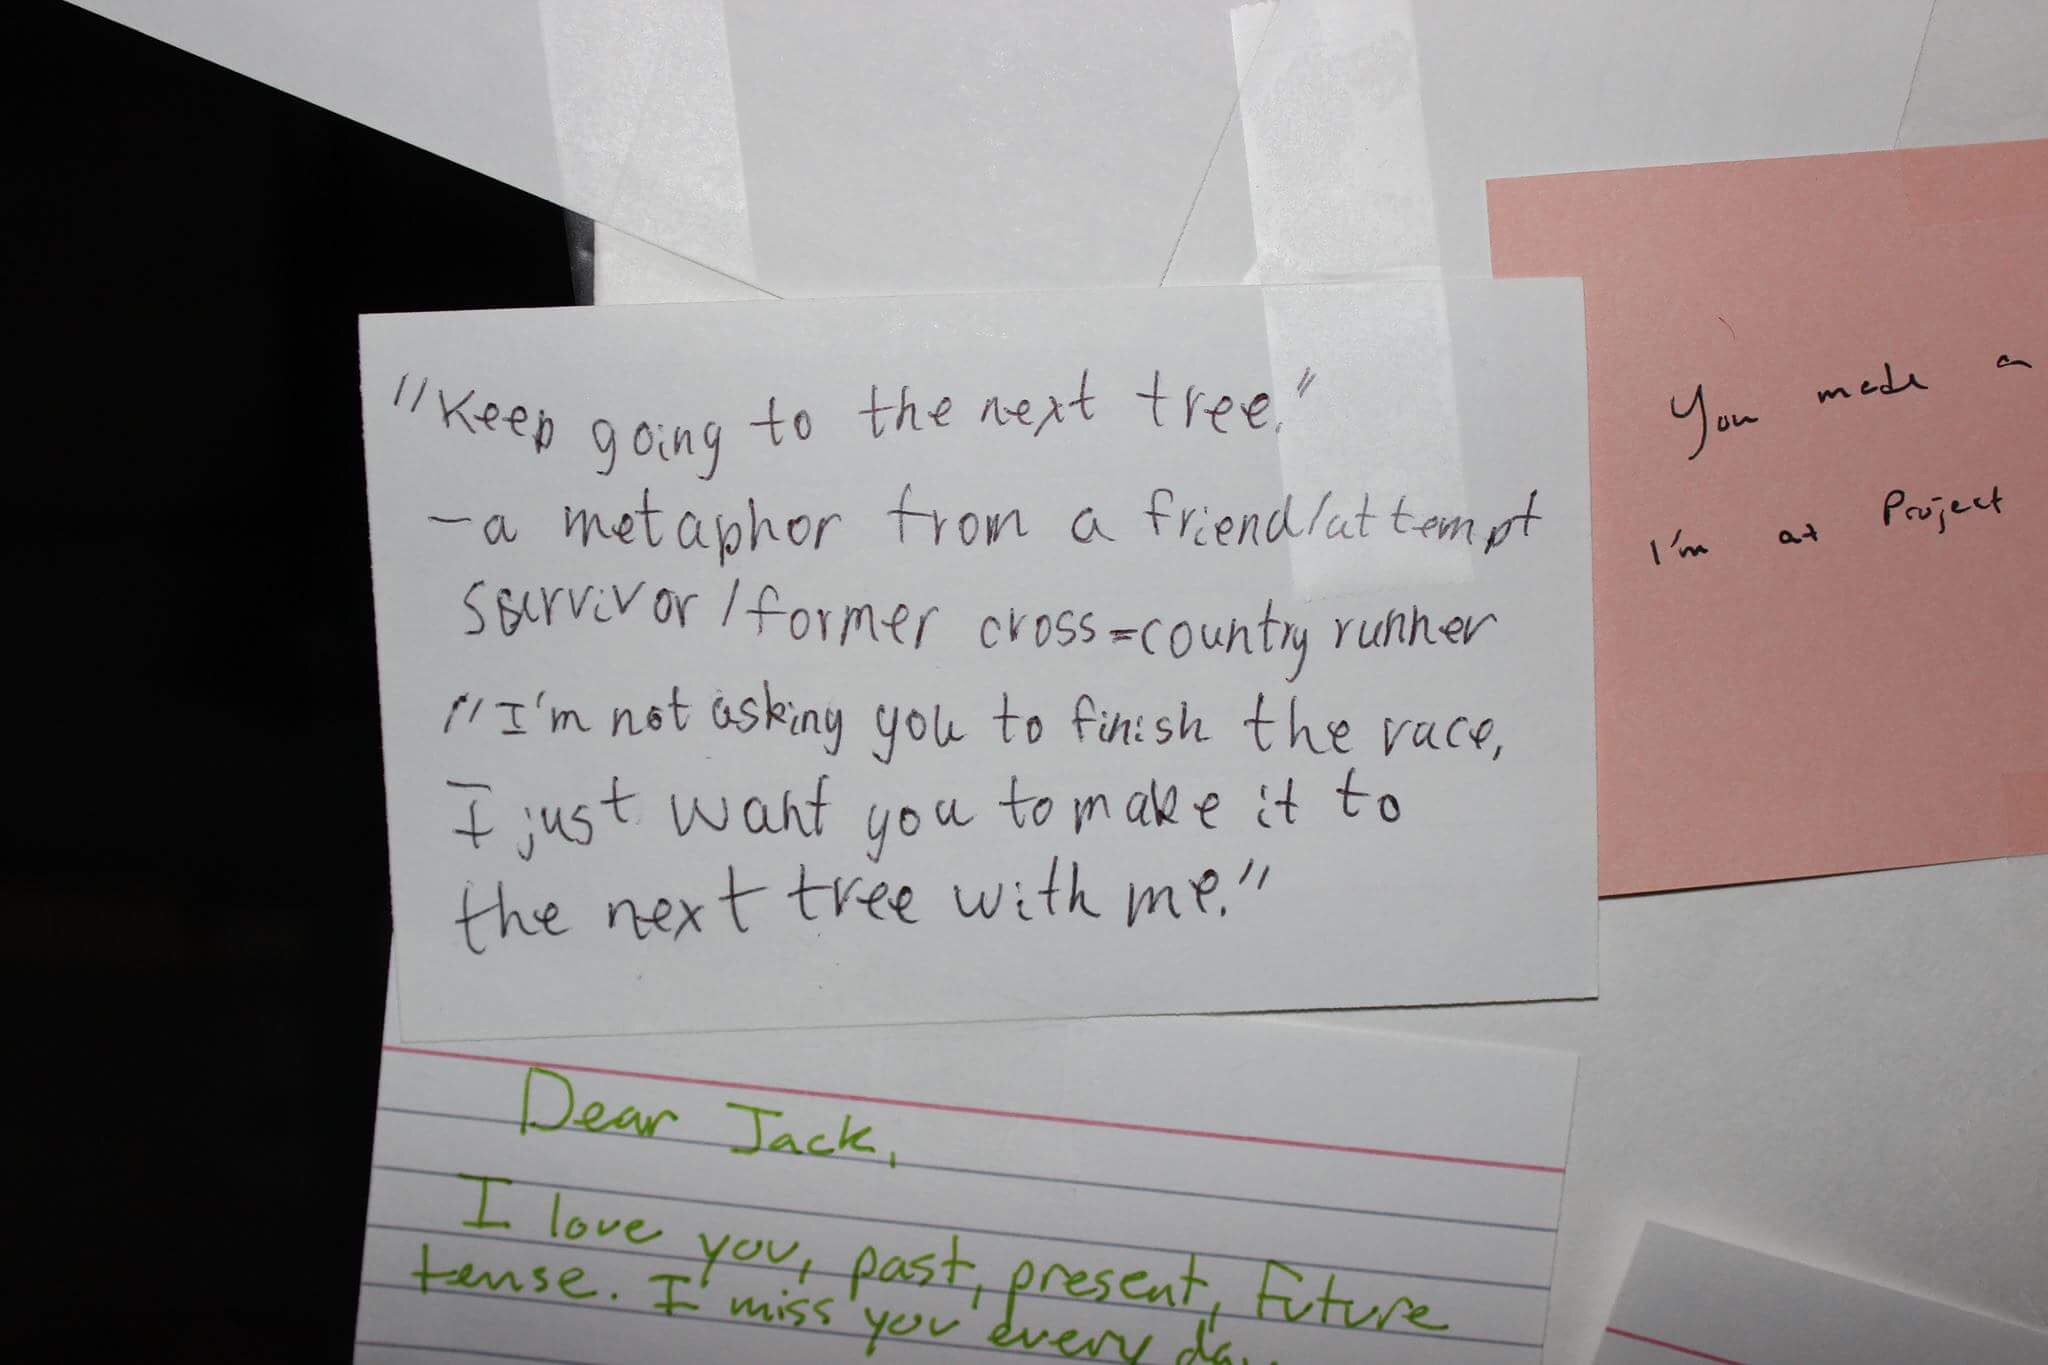 "Keep going to the next tree."
-a metaphor from a friend/attempt
survivor/former cross-country runner
"I'm not asking you to finish the race,
I just want you to make it to
the next tree with me."
You made a
I'm at Project
Dear Jack,
I love you, past, present, future
tense. I miss you every